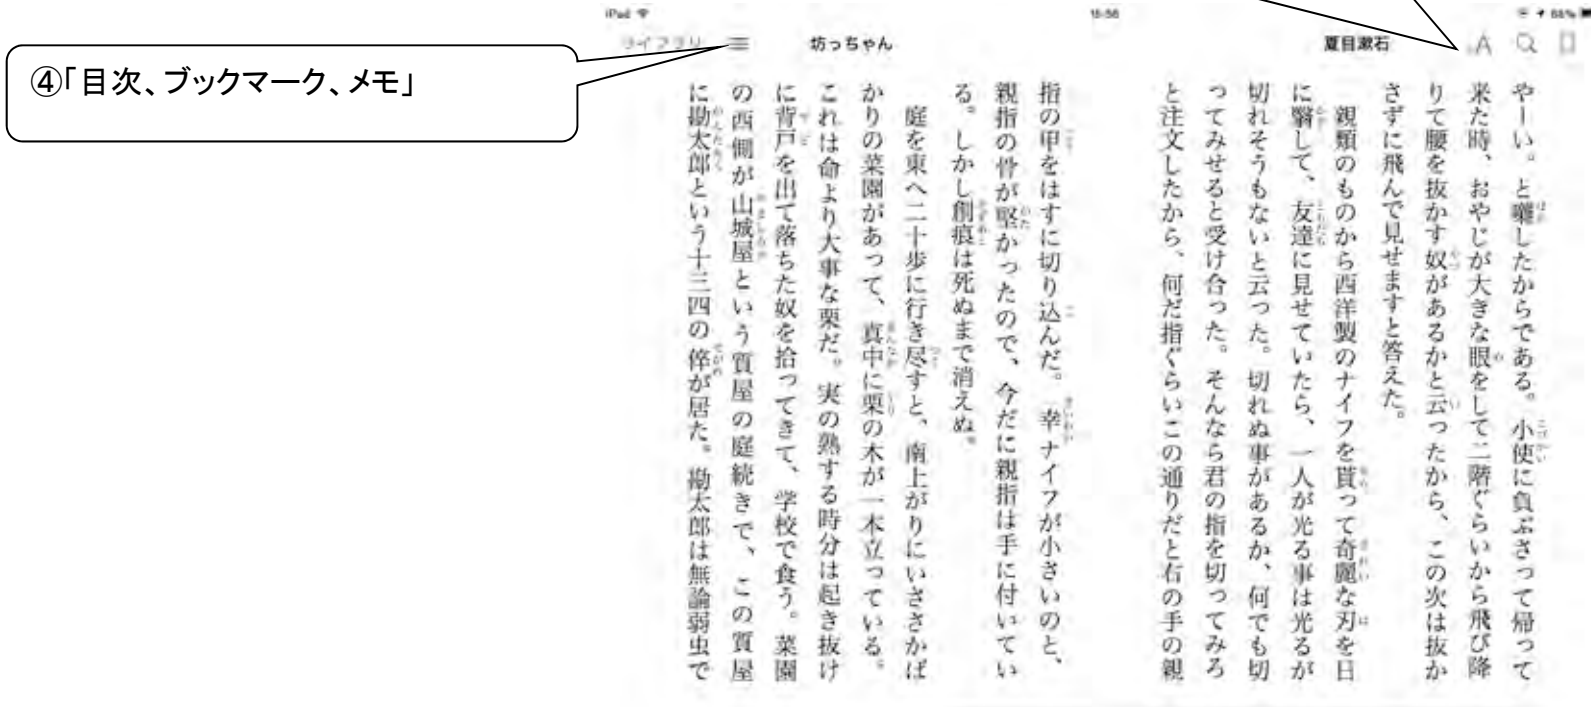 iPad
15:56
④「目次、ブックマーク、メモ」
ライブラリ
坊っちゃん
夏目漱石
AA
やーい。と囃したからである。小使に負ぶさって帰って
来た時、おやじが大きな眼をして二階ぐらいから飛び降
りて腰を抜かす奴があるかと云ったから、この次は抜か
さずに飛んで見せますと答えた。
親類のものから西洋製のナイフを貰って奇麗な刃を日
に翳して、友達に見せていたら、一人が光る事は光るが
切れそうもないと云った。切れぬ事があるか、何でも切
ってみせると受け合った。そんなら君の指を切ってみろ
と注文したから、何だ指ぐらいこの通りだと右の手の親
指の甲をはすに切り込んだ。幸ナイフが小さいのと、
親指の骨が堅かったので、今だに親指は手に付いてい
る。しかし創痕は死ぬまで消えぬ。
庭を東へ二十歩に行き尽すと、南上がりにいささかば
かりの菜園があって、真中に栗の木が一本立っている。
これは命より大事な栗だ。実の熟する時分は起き抜け
に背戸を出て落ちた奴を拾ってきて、学校で食う。菜園
の西側が山城屋という質屋の庭続きで、この質屋
に勘太郎という十三四の倅が居た。勘太郎は無論弱虫で